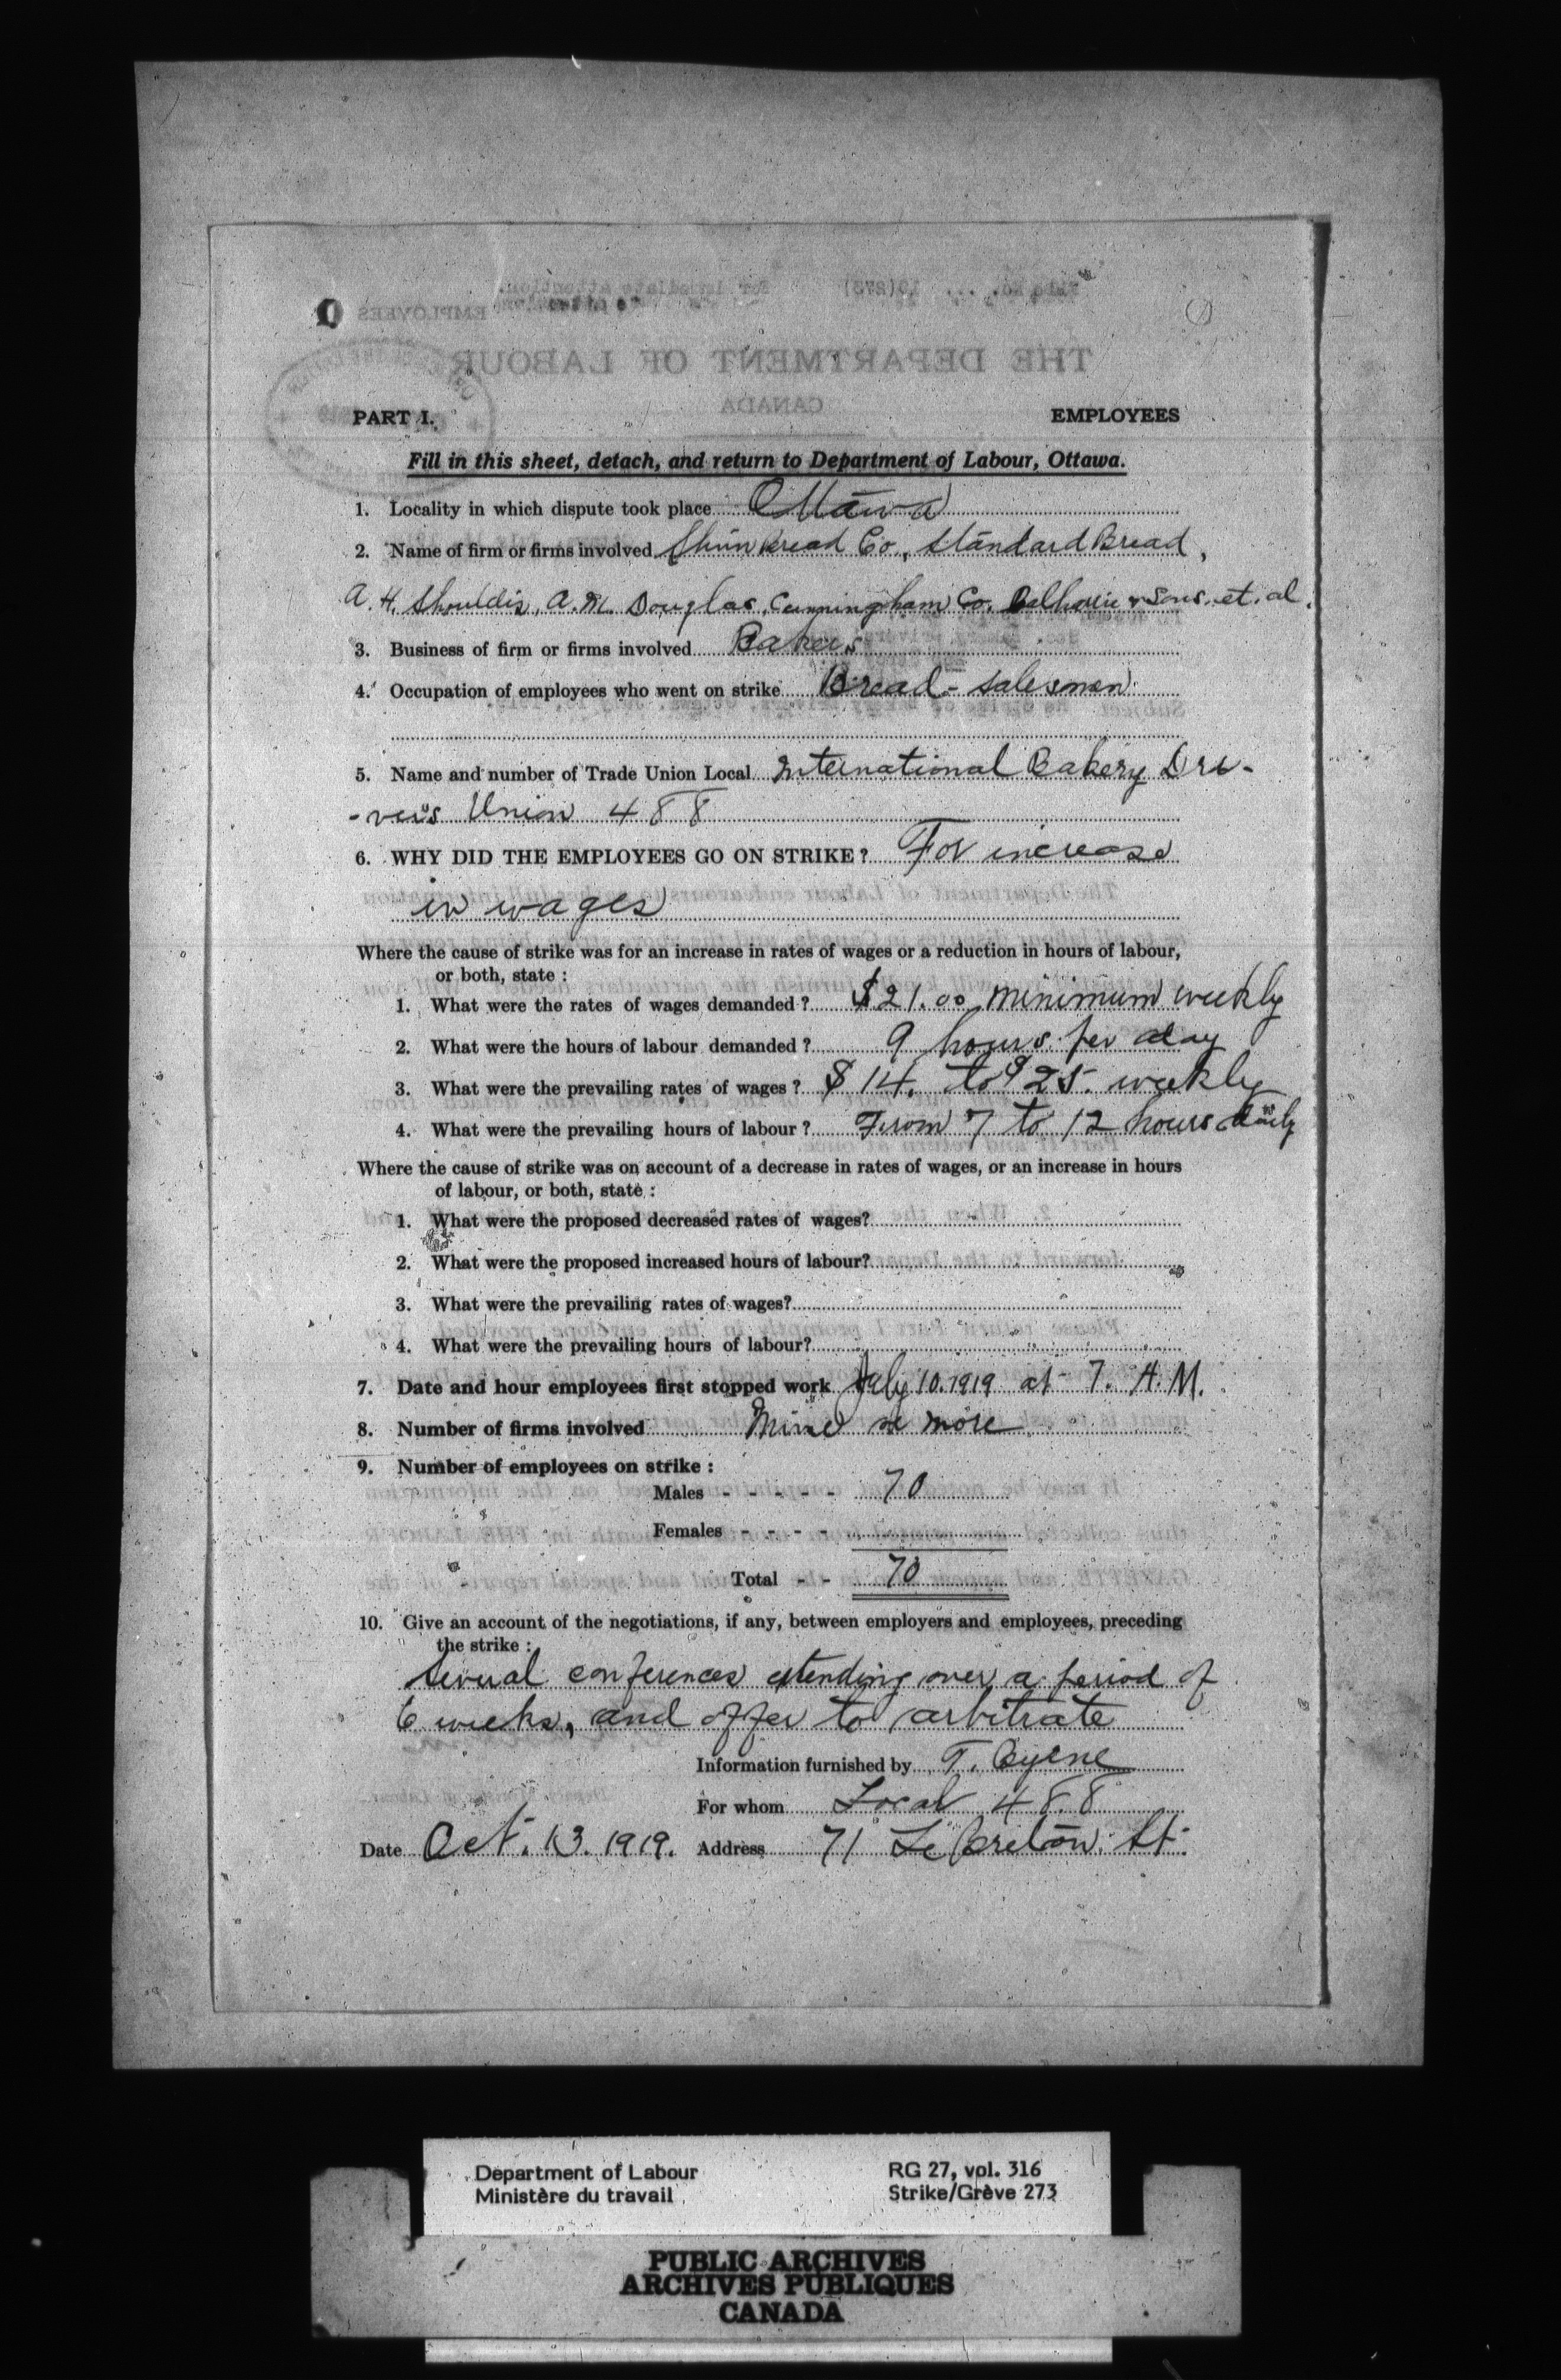 PART I. EMPLOYEES
Fill in this sheet, detach, and return to Department of Labour, Ottawa.
1. Locality in which dispute took place Ottawa
2. Name of firm or firms involved Bread Co, Standard Bread,
A. H. Shouldis, A. M. Douglas, Cunningham Co. & Sons. et. al.
3. Business of firm or firms involved Bakers
4. Occupation of employees who went on strike Bread-salesmen
5. Name and number of Trade Union Local International Bakery Dri-
-vers Union 488
6. WHY DID THE EMPLOYEES GO ON STRIKE? For increase
in wages
Where the cause of strike was for an increase in rates of wages or a reduction in hours of labour,
or both, state :
1. What were the rates of wages demanded? $21.00 minimum weekly
2. What were the hours of labour demanded? 9 hours per day
3. What were the prevailing rates of wages? $14. to $25. weekly
4. What were the prevailing hours of labour? From 7 to 12 hours daily
Where the cause of strike was on account of a decrease in rates of wages, or an increase in hours
of labour, or both, state :
1. What were the proposed decreased rates of wages?
2. What were the proposed increased hours of labour?
3. What were the prevailing rates of wages?
4. What were the prevailing hours of labour?
7. Date and hour employees first stopped work July 10. 1919 at 7. A. M.
8. Number of firms involved Nine or more
9. Number of employees on strike :
Males - - - - - 70
Females - - - -
Total - - 70
10. Give an account of the negotiations, if any, between employers and employees, preceding
the strike :
Several conferences extending over a period of
6 weeks, and offer to arbitrate
Information furnished by T. Byrne
For whom Local 488
Date Oct. 13. 1919. Address 71 LeBreton. St.
Department of Labour RG 27, vol. 316
Ministère du travail Strike/Grève 273
PUBLIC ARCHIVES
ARCHIVES PUBLIQUES
CANADA